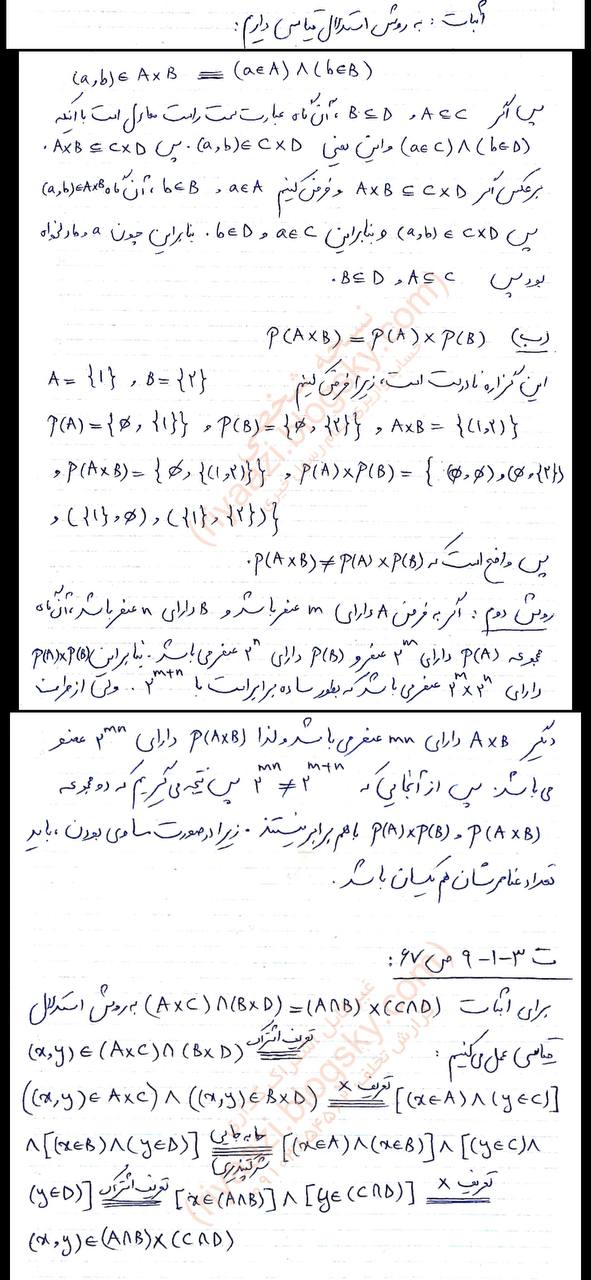 اثبات : به روش استدلال قیاسی داریم :
(a,b)∈A×B ≡ (a∈A)∧(b∈B)
پس اگر A⊆C و B⊆D ، آن‌گاه عبارت سمت راست معادل است با اینکه
(a∈C)∧(b∈D) و این یعنی (a,b)∈C×D . پس A×B⊆C×D .
برعکس اگر A×B⊆C×D و فرض کنیم a∈A و b∈B ، آن گاه (a,b)∈A×B
پس (a,b)∈C×D و بنابراین a∈C و b∈D . بنابراین چون a و b دلخواه
بود پس A⊆C و B⊆D .
(ب) P(A×B)=P(A)×P(B)
این گزاره نادرست است، زیرا فرض کنیم A={۱} , B={۲}
P(A)={∅, {۱}} , P(B)={∅, {۲}} , A×B={(۱,۲)}
, P(A×B)={∅, {(۱,۲)}} , P(A)×P(B)={ (∅,∅),(∅,{۲})
, ({۱},∅), ({۱}, {۲})}
پس واضح است که P(A×B)≠P(A)×P(B) .
روش دوم : اگر به فرض A دارای m عنصر باشد و B دارای n عنصر باشد، آن گاه
مجموعه P(A) دارای ۲^m عنصر و P(B) دارای ۲^n عنصر می باشد . بنابراین P(A)×P(B)
دارای ۲^m×۲^n عنصر می باشد که بطور ساده برابر است با ۲^{m+n} . ولی از طرف
دیگر A×B دارای mn عنصر می باشد و لذا P(A×B) دارای ۲^{mn} عضو
می باشد. پس از آنجایی که ۲^{mn} ≠ ۲^{m+n} پس نتیجه می گیریم که دو مجموعه
P(A×B) و P(A)×P(B) با هم برابر نیستند . زیرا در صورت مساوی بودن ، باید
تعداد عناصرشان هم یکسان باشد .
ت ۳-۱-۹ ص ۶۷ :
برای اثبات (A×C)∩(B×D)=(A∩B)×(C∩D) به روش استدلال
قیاسی عمل می کنیم : (x,y)∈(A×C)∩(B×D) تعریف اشتراک
((x,y)∈A×C)∧((x,y)∈B×D) تعریف × [(x∈A)∧(y∈C)]
∧[(x∈B)∧(y∈D)] جابه جایی شرکتپذیری [(x∈A)∧(x∈B)]∧[(y∈C)∧
(y∈D)] تعریف اشتراک [x∈(A∩B)]∧[y∈(C∩D)] تعریف ×
(x,y)∈(A∩B)×(C∩D)